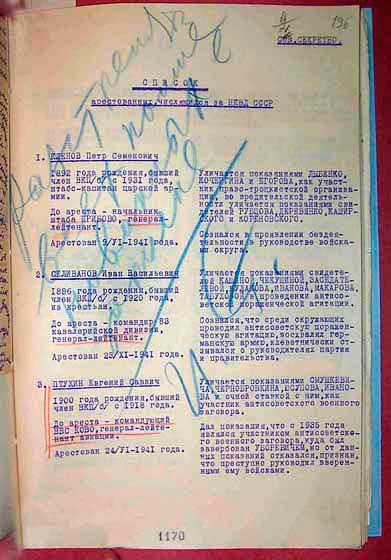 196
СОВ.СЕКРЕТНО.
СПИСОК
арестованных, числящихся за НКВД СССР
Расстрелять
всех поименованных
в списке
И. Ст.
1. КЛЕНОВ Петр Семенович
1892 года рождения, бывший
член ВКП/б/ с 1931 года,
штабс-капитан царской ар-
мии.
До ареста - начальник
штаба ПРИБОВО, генерал-
лейтенант.
Арестован 9/VI-1941 года.
Уличается показаниями ДЫБЕНКО,
КОЧЕРГИНА и ЕГОРОВА, как участ-
ник право-троцкистской организа-
ции, во вредительской деятель-
ности уличается показаниями сви-
детелей РУБЦОВА, ДЕРЕВЯНКО, КАШИР-
СКОГО и КОРЕНОВСКОГО.
Сознался в проявлении бездея-
тельности в руководстве войска-
ми округа.
2. СЕЛИВАНОВ Иван Васильевич
1886 года рождения, бывший
член ВКП/б/ с 1920 года,
из крестьян.
До ареста - командир 83
кавалерийской дивизии,
генерал-лейтенант.
Арестован 23/XI-1941 года.
Уличается показаниями свидете-
лей ЧЕКУШИНОЙ, ЗАСЕДАТЕ-
ЛЕВОЙ, ИВАНОВА, МАКАРОВА,
в проведении антисо-
ветской пораженческой агитации.
Сознался, что среди окружающих
проводил антисоветскую поражен-
ческую агитацию, восхвалял гер-
манскую армию, клеветнически от-
зывался о руководителях партии
и правительства.
3. ПТУХИН Евгений Саввич
1900 года рождения, бывший
член ВКП/б/ с 1918 года.
До ареста - командующий
ВВС КОВО, генерал-лейте-
нант авиации.
Арестован 24/VI-1941 года.
Уличается показаниями СМУШКЕВИ-
ЧА, ЧЕРНОБРОВКИНА, ЮСУПОВА, ИВАНО-
ВА и очной ставкой с ним, как
участник антисоветского военного
заговора.
Дал показания, что с 1935 года
являлся участником антисоветско-
го военного заговора, куда был
завербован УБОРЕВИЧЕМ, но от
данных показаний отказался, признав,
что преступно руководил вверен-
ными ему войсками.
1170